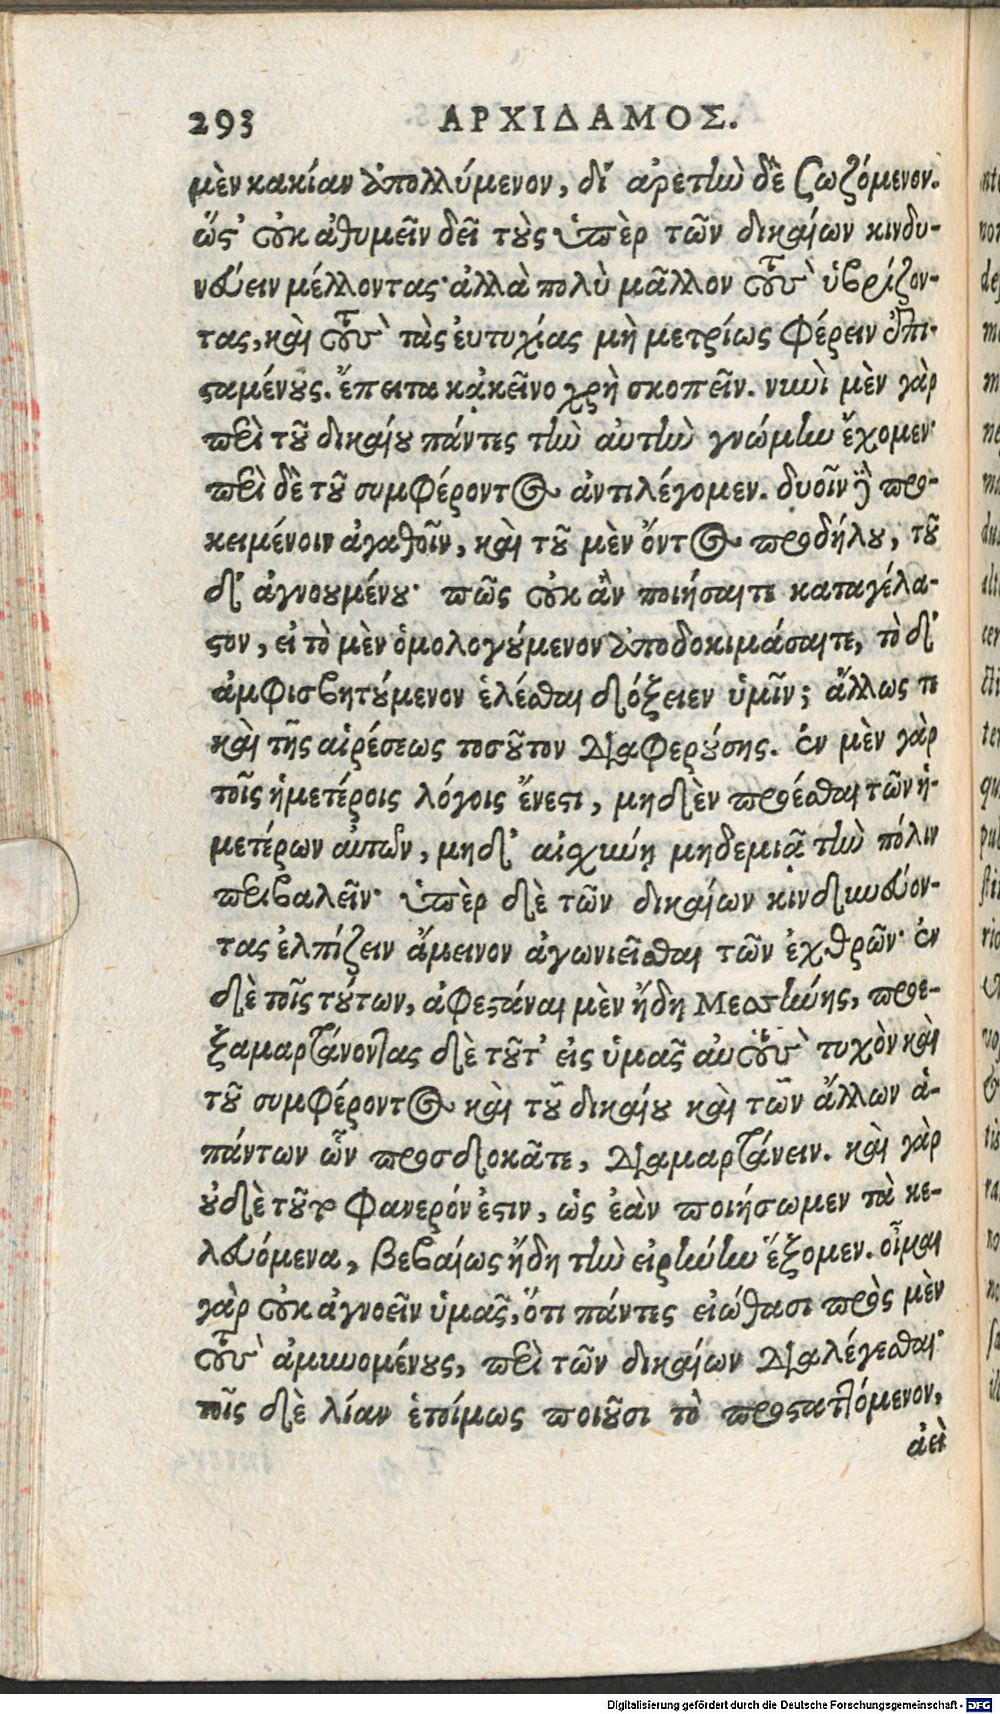 293 ΑΡΧΙΔΑΜΟΣ.
μὲν κακίαν ἀπολλύμενον, δι' ἀρετὴν δὲ σωζόμενον.
ὥστ' οὐκ ἀθυμεῖν δεῖ τοὺς ὑπὲρ τῶν δικαίων κινδυ-
νεύειν μέλλοντας· ἀλλὰ πολὺ μᾶλλον τοὺς ὑβρίζον-
τας, καὶ τοὺς τὰς εὐτυχίας μὴ μετρίως φέρειν ἐπι-
σταμένους. ἔπειτα κἀκεῖνο χρὴ σκοπεῖν. νυνὶ μὲν γὰρ
περὶ τοῦ δικαίου πάντες τὴν αὐτὴν γνώμην ἔχομεν·
περὶ δὲ τοῦ συμφέροντος ἀντιλέγομεν. δυοῖν δὲ προ-
κειμένοιν ἀγαθοῖν, καὶ τοῦ μὲν ὄντος προδήλου, τοῦ
δ' ἀγνοουμένου· πῶς οὐκ ἂν ποιήσαιτε καταγέλα-
στον, εἰ τὸ μὲν ὁμολογούμενον ἀποδοκιμάσαιτε, τὸ δ'
ἀμφισβητούμενον ἑλέσθαι δόξειεν ὑμῖν; ἄλλως τε
καὶ τῆς αἱρέσεως τοσοῦτον διαφερούσης. ἐν μὲν γὰρ
τοῖς ἡμετέροις λόγοις ἔνεστι, μηδὲν προέσθαι τῶν ἡ-
μετέρων αὐτῶν, μηδ' αἰσχύνῃ μηδεμιᾷ τὴν πόλιν
περιβαλεῖν· ὑπὲρ δὲ τῶν δικαίων κινδυνεύον-
τας ἐλπίζειν ἄμεινον ἀγωνιεῖσθαι τῶν ἐχθρῶν· ἐν
δὲ τοῖς τούτων, ἀφεστάναι μὲν ἤδη Μεσσήνης, προε-
ξαμαρτάνοντας δὲ τοῦτ' εἰς ὑμᾶς αὐτοὺς τυχὸν καὶ
τοῦ συμφέροντος καὶ τοῦ δικαίου καὶ τῶν ἄλλων ἁ-
πάντων ὧν προσδοκᾶτε, διαμαρτάνειν. καὶ γὰρ
οὐδὲ τοῦτο φανερόν ἐστιν, ὡς ἐὰν ποιήσωμεν τὰ κε-
λευόμενα, βεβαίως ἤδη τὴν εἰρήνην ἕξομεν. οἶμαι
γὰρ οὐκ ἀγνοεῖν ὑμᾶς, ὅτι πάντες εἰώθασι πρὸς μὲν
τοὺς ἀμυνομένους, περὶ τῶν δικαίων διαλέγεσθαι·
τοῖς δὲ λίαν ἑτοίμως ποιοῦσι τὸ προσταττόμενον,
ἀεὶ
Digitalisierung gefördert durch die Deutsche Forschungsgemeinschaft - DFG